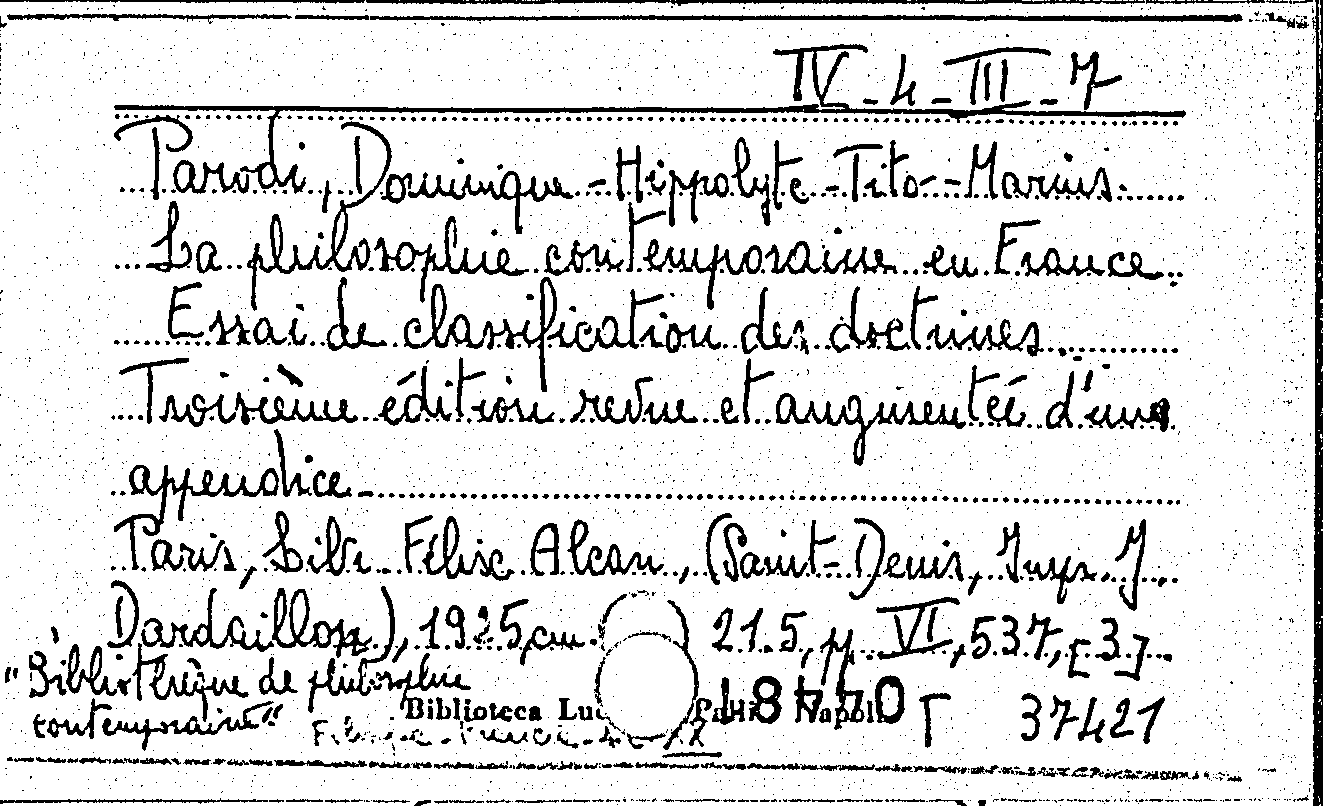 IV-4-III-7
Parodi, Dominique-Hippolyte-Tito-Marius.
La philosophie contemporaine en France.
Essai de classification des doctrines.
Troisième édition revue et augmentée d'une
appendice
Paris, Libr. Félix Alcan, (Saint-Denis, Imp. J.
Dardaillon), 1925, cm. 21.5, pp. VI, 537, [3].
"Bibliothèque de philosophie
contemporaine"
Biblioteca 18770 T 37421
XX